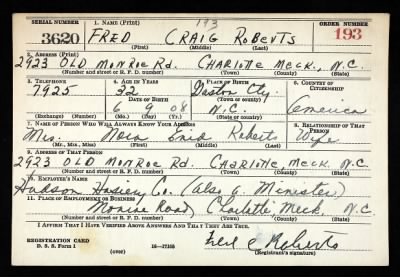 SERIAL NUMBER 1. NAME (Print) ORDER NUMBER
193
3620 FRED CRAIG ROBERTS 193
(First) (Middle) (Last)
2. ADDRESS (Print)
2923 OLD MONROE Rd. CHARLOTTE MECK. N.C.
(Number and street or R. F. D. number) (Town) (County) (State)
3. TELEPHONE 4. AGE IN YEARS 5. PLACE OF BIRTH 6. COUNTRY OF CITIZENSHIP
7925 32 Gaston Cty.
DATE OF BIRTH (Town or county)
6 9 08 N.C. America
(Exchange) (Number) (Mo.) (Day) (Yr.) (State or country)
7. NAME OF PERSON WHO WILL ALWAYS KNOW YOUR ADDRESS 8. RELATIONSHIP OF THAT PERSON
Mrs. Nora Enid Roberts Wife
(Mr., Mrs., Miss) (First) (Middle) (Last)
9. ADDRESS OF THAT PERSON
2923 OLD MONROE Rd. CHARLOTTE MECK. N.C.
(Number and street or R. F. D. number) (Town) (County) (State)
10. EMPLOYER'S NAME
Hudson Hosiery Co. (also a Minister)
11. PLACE OF EMPLOYMENT OR BUSINESS
Monroe Road, Charlotte Meck. N.C.
(Number and street or R. F. D. number) (Town) (County) (State)
I AFFIRM THAT I HAVE VERIFIED ABOVE ANSWERS AND THAT THEY ARE TRUE.
REGISTRATION CARD
D. S. S. Form 1 16—17105 Fred C Roberts
(Registrant's signature)